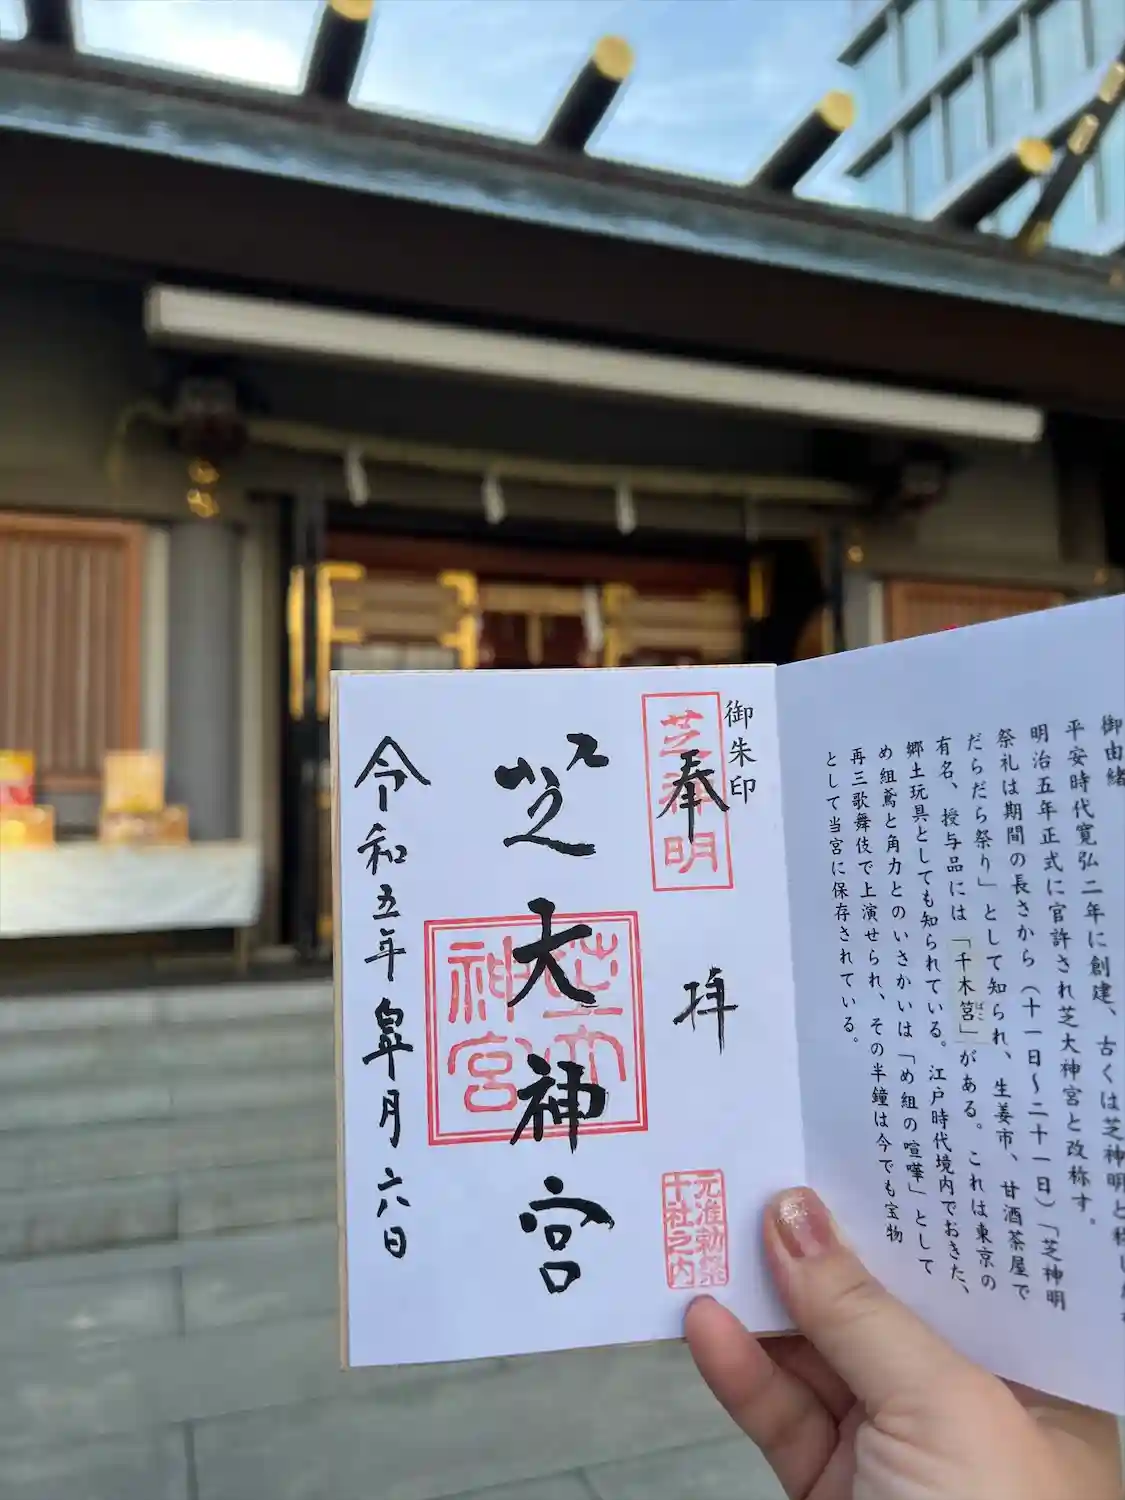 御由緒
平安時代寛弘二年に創建、古くは芝神明と称し
明治五年正式に官許され芝大神宮と改称す。
祭礼は期間の長さから（十一日～二十一日）「芝神明
だらだら祭り」として知られ、生姜市、甘酒茶屋で
有名、授与品には「千木筥」がある。これは東京の
ばこ
郷土玩具としても知られている。江戸時代境内でおきた、
め組鳶と角力とのいさかいは「め組の喧嘩」として
再三歌舞伎で上演せられ、その半鐘は今でも宝物
として当宮に保存されている。
御朱印
芝神明
奉拝
元准勅祭
十社之内
芝大神宮
芝大
神宮
令和五年皐月六日